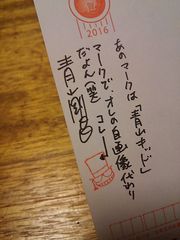 2016
あのマークは「青山キッド」
マークで、オレの自画像代わり
だよん(笑) コレ→
青山剛昌